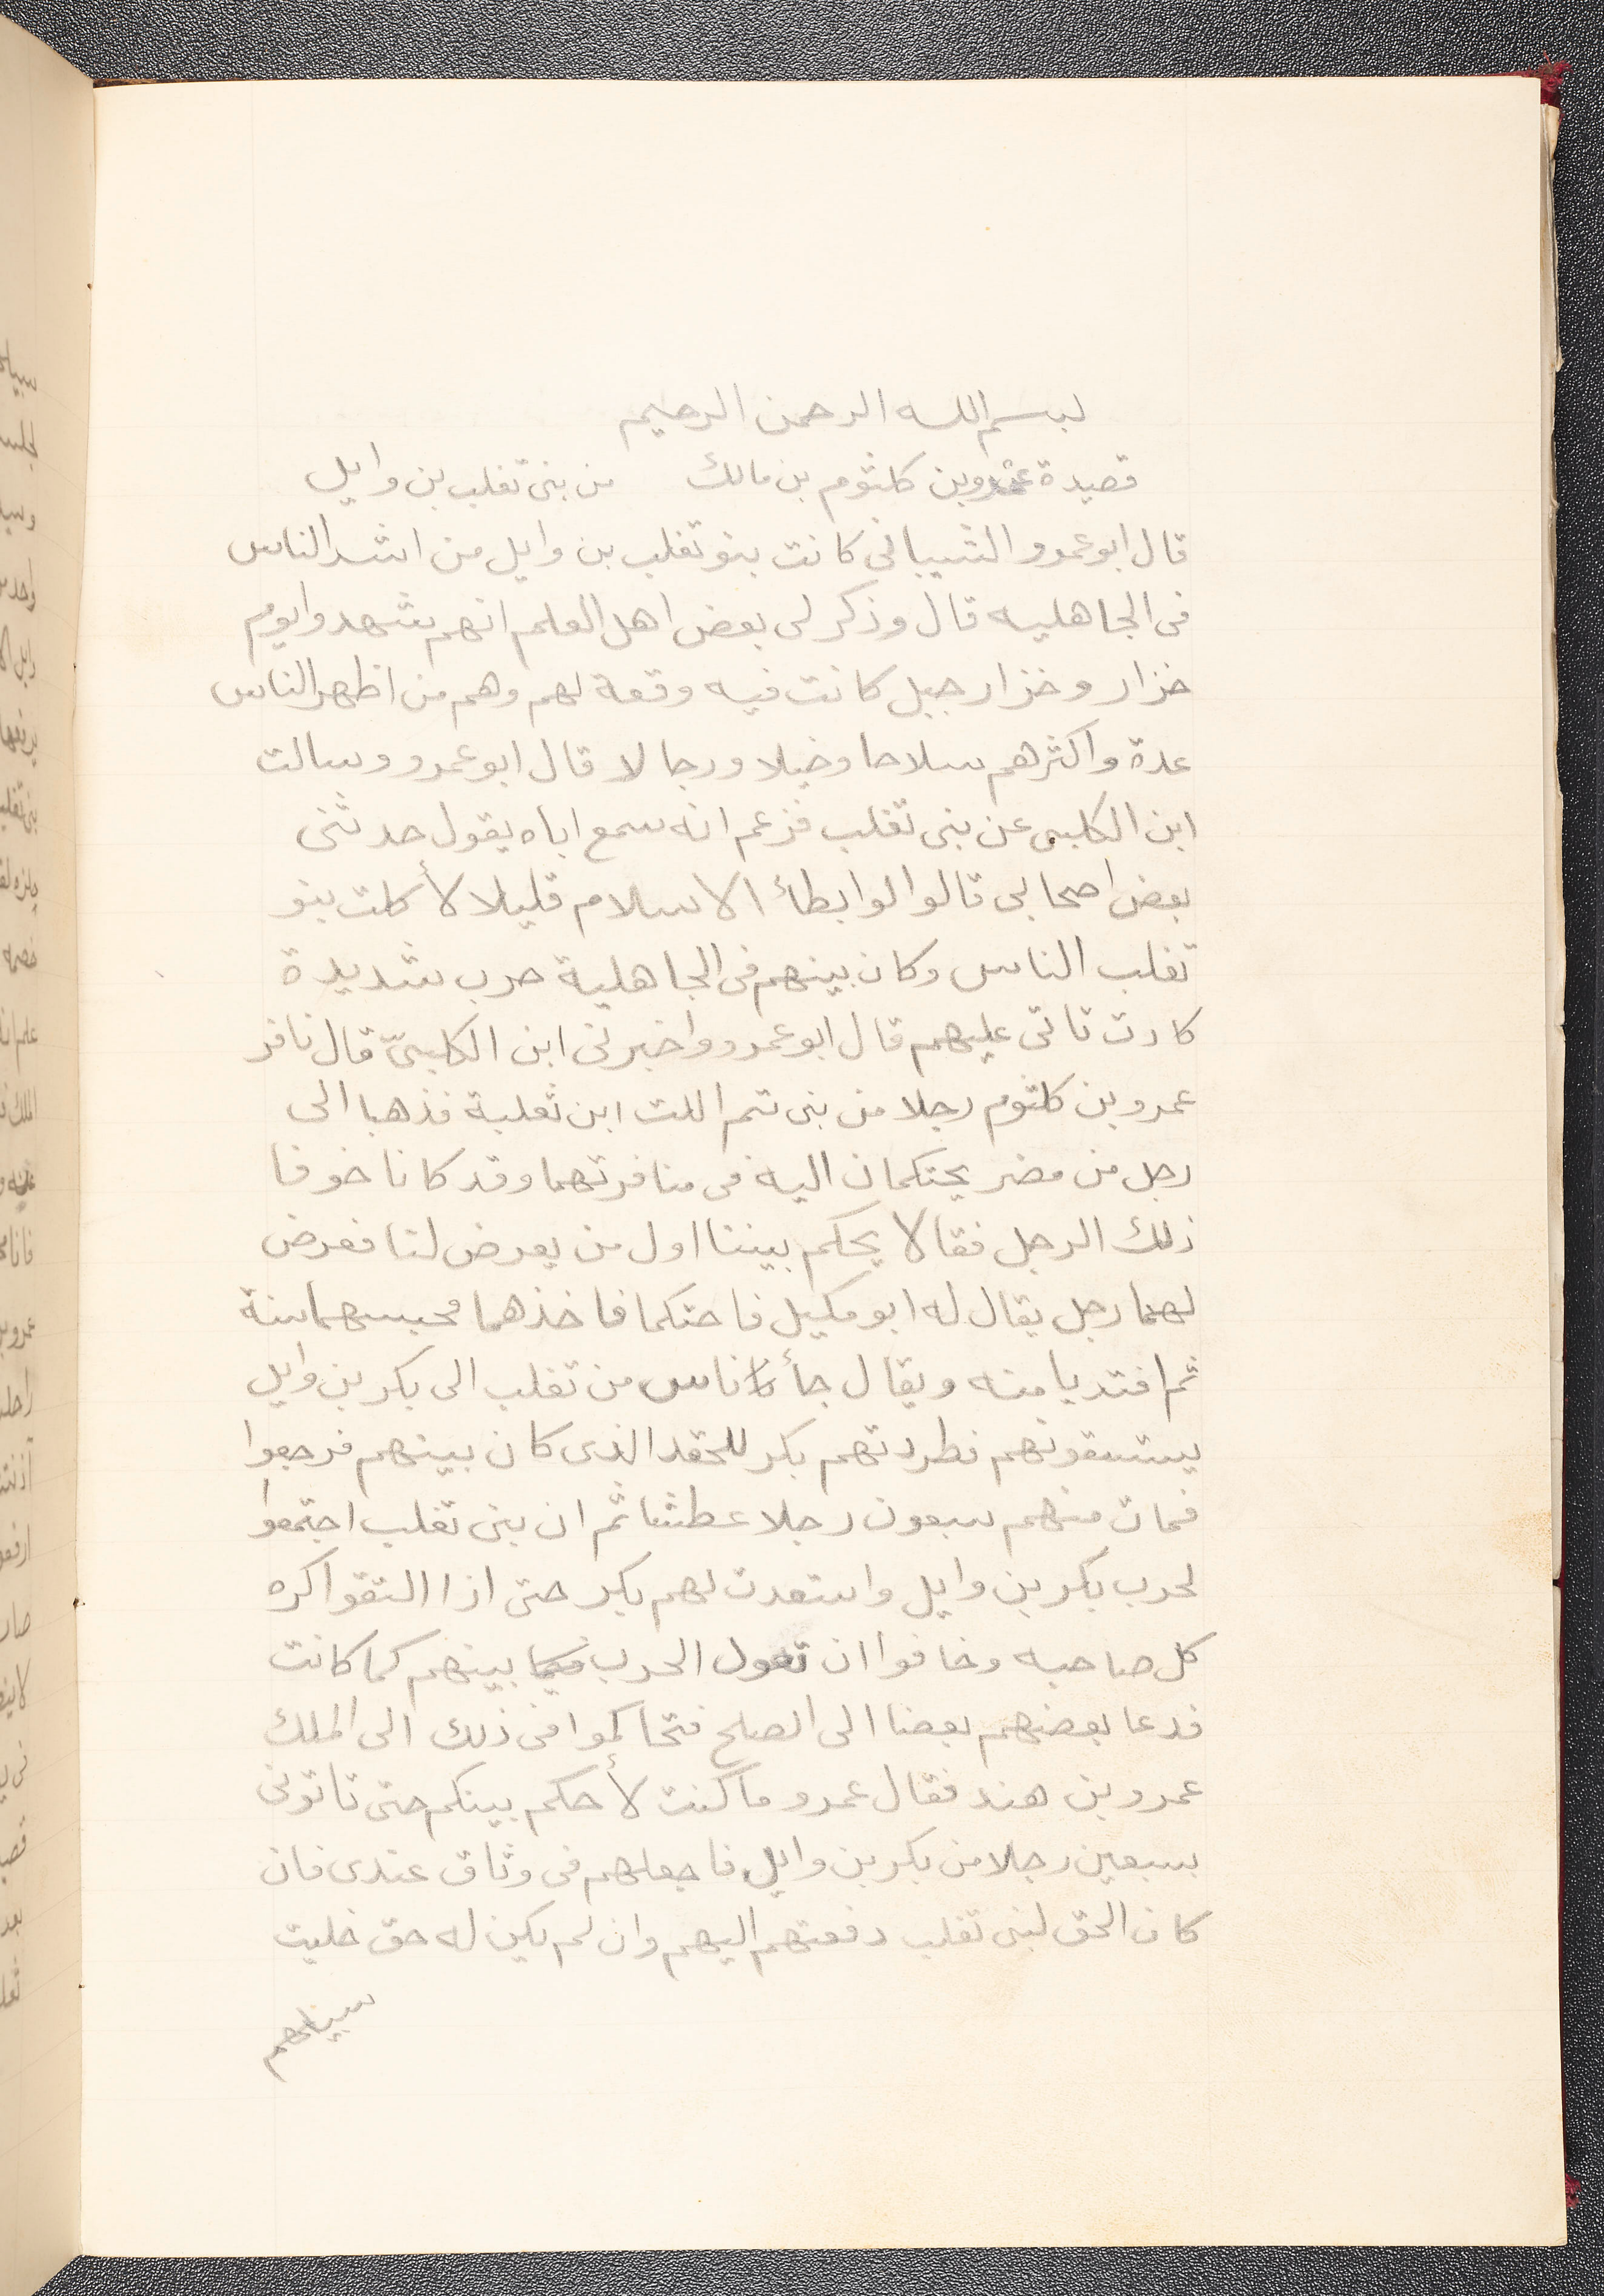 بسم الله الرحمن الرحيم
قصيدة عمرو بن كلثوم بن مالك من بنى تغلب بن وايل
قال ابو عمرو الشيبانى كانت بنو تغلب بن وايل من اشد الناس
فى الجاهليه قال وذكر لى بعض اهل العلم انهم شهدوا يوم
خزار وخزار جبل كانت فيه وقعة لهم وهم من اظهر الناس
عدة واكثرهم سلاحا وخيلا ورجالا قال ابو عمرو وسالت
ابن الكلبى عن بنى تغلب فزعم انه سمع اباه يقول حدثنى
بعض اصحابى قالوا لو ابطأ الاسلام قليلا لأكلت بنو
تغلب الناس وكان بينهم فى الجاهلية حرب شديدة
كادت تاتى عليهم قال ابو عمرو واخبرنى ابن الكلبىّ قال نافر
عمرو بن كلثوم رجلا من بنى تيم اللت ابن ثعلبة فذهبا الى
رجل من مضر يحتكمان اليه فى منافرتهما وقد كانا خوفا
ذلك الرجل فقالا يحكم بيننا اول من يعرض لنا فعرض
لهما رجل يقال له ابو مكيل فاحتكما فاخذهما فحبسهما سنة
ثم افتديا منه ويقال جأ ناس من تغلب الى بكر بن وايل
يستسقونهم فطردتهم بكر للحقد الذى كان بينهم فرجعوا
فمات منهم سبعون رجلا عطشا ثم ان بنى تغلب اجتمعوا
لحرب بكر بن وايل واستعدت لهم بكر حتى اذا التقوا كره
كل صاحبه وخافوا ان تعول الحرب فيما بينهم كما كانت
فدعا بعضهم بعضا الى الصلح فتحاكموا فى ذلك الى الملك
عمرو بن هند فقال عمرو ما كنت لأحكم بينكم حتى تاتونى
بسبعين رجلا من بكر بن وايل فاجعلهم فى وثاق عندى فان
كان الحق لبنى تغلب دفعتهم اليهم وان لم يكن له حق خليت
سبيلهم